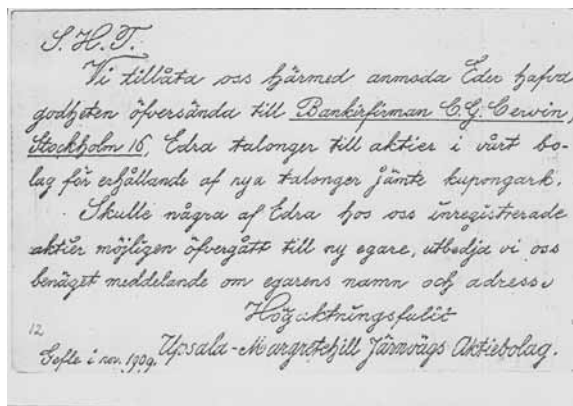 S. H. T.
Vi tillåta oss härmed anmoda Eder hafva
godheten öfversända till Bankirfirman C.G. Cervin,
Stockholm 16, Edra talonger till aktier i vårt bo-
lag för erhållande af nya talonger jämte kupongark.
Skulle några af Edra hos oss inregistrerade
aktier möjligen öfvergått till ny egare, utbedja vi oss
benäget meddelande om egarens namn och adress.
Högaktningsfullt
12
Gefle i nov. 1909. Upsala-Margretehill Järnvägs Aktiebolag.